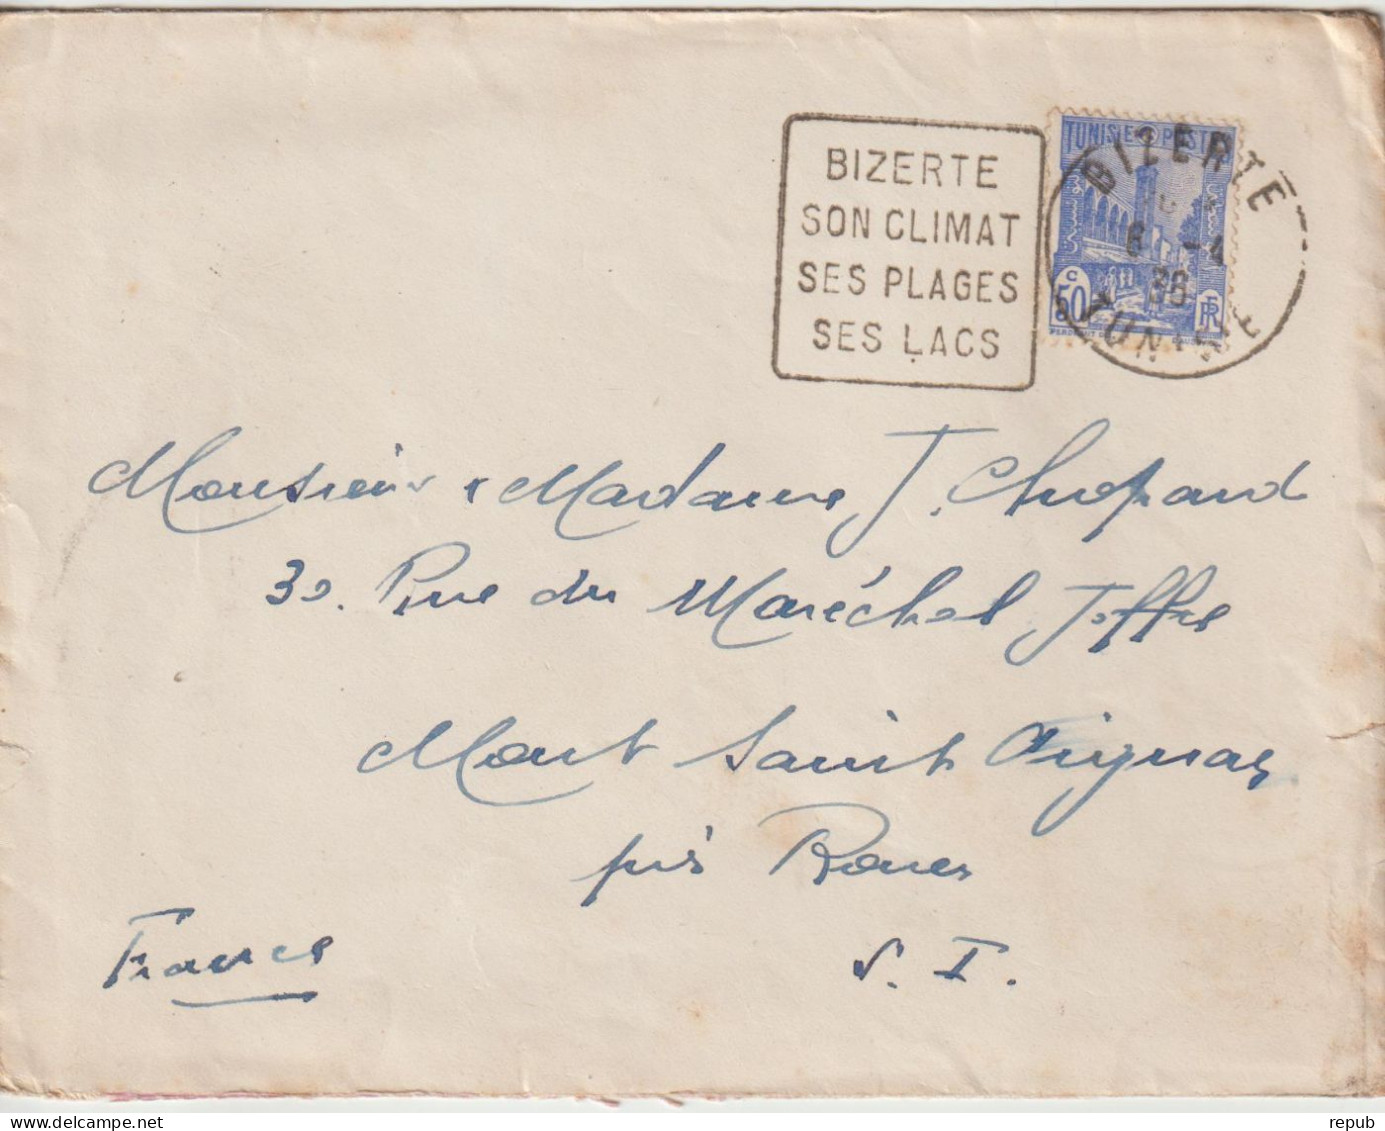 BIZERTE
SON CLIMAT
SES PLAGES
SES LACS
TUNISIE POSTES
50 c
RF
BIZERTE
6 -4
36
TUNISIE
Monsieur & Madame J. Chopard
30. Rue du Maréchal Joffre
Mont Saint Aignan
près Rouen
S. I.
France
delcampe.net
repub